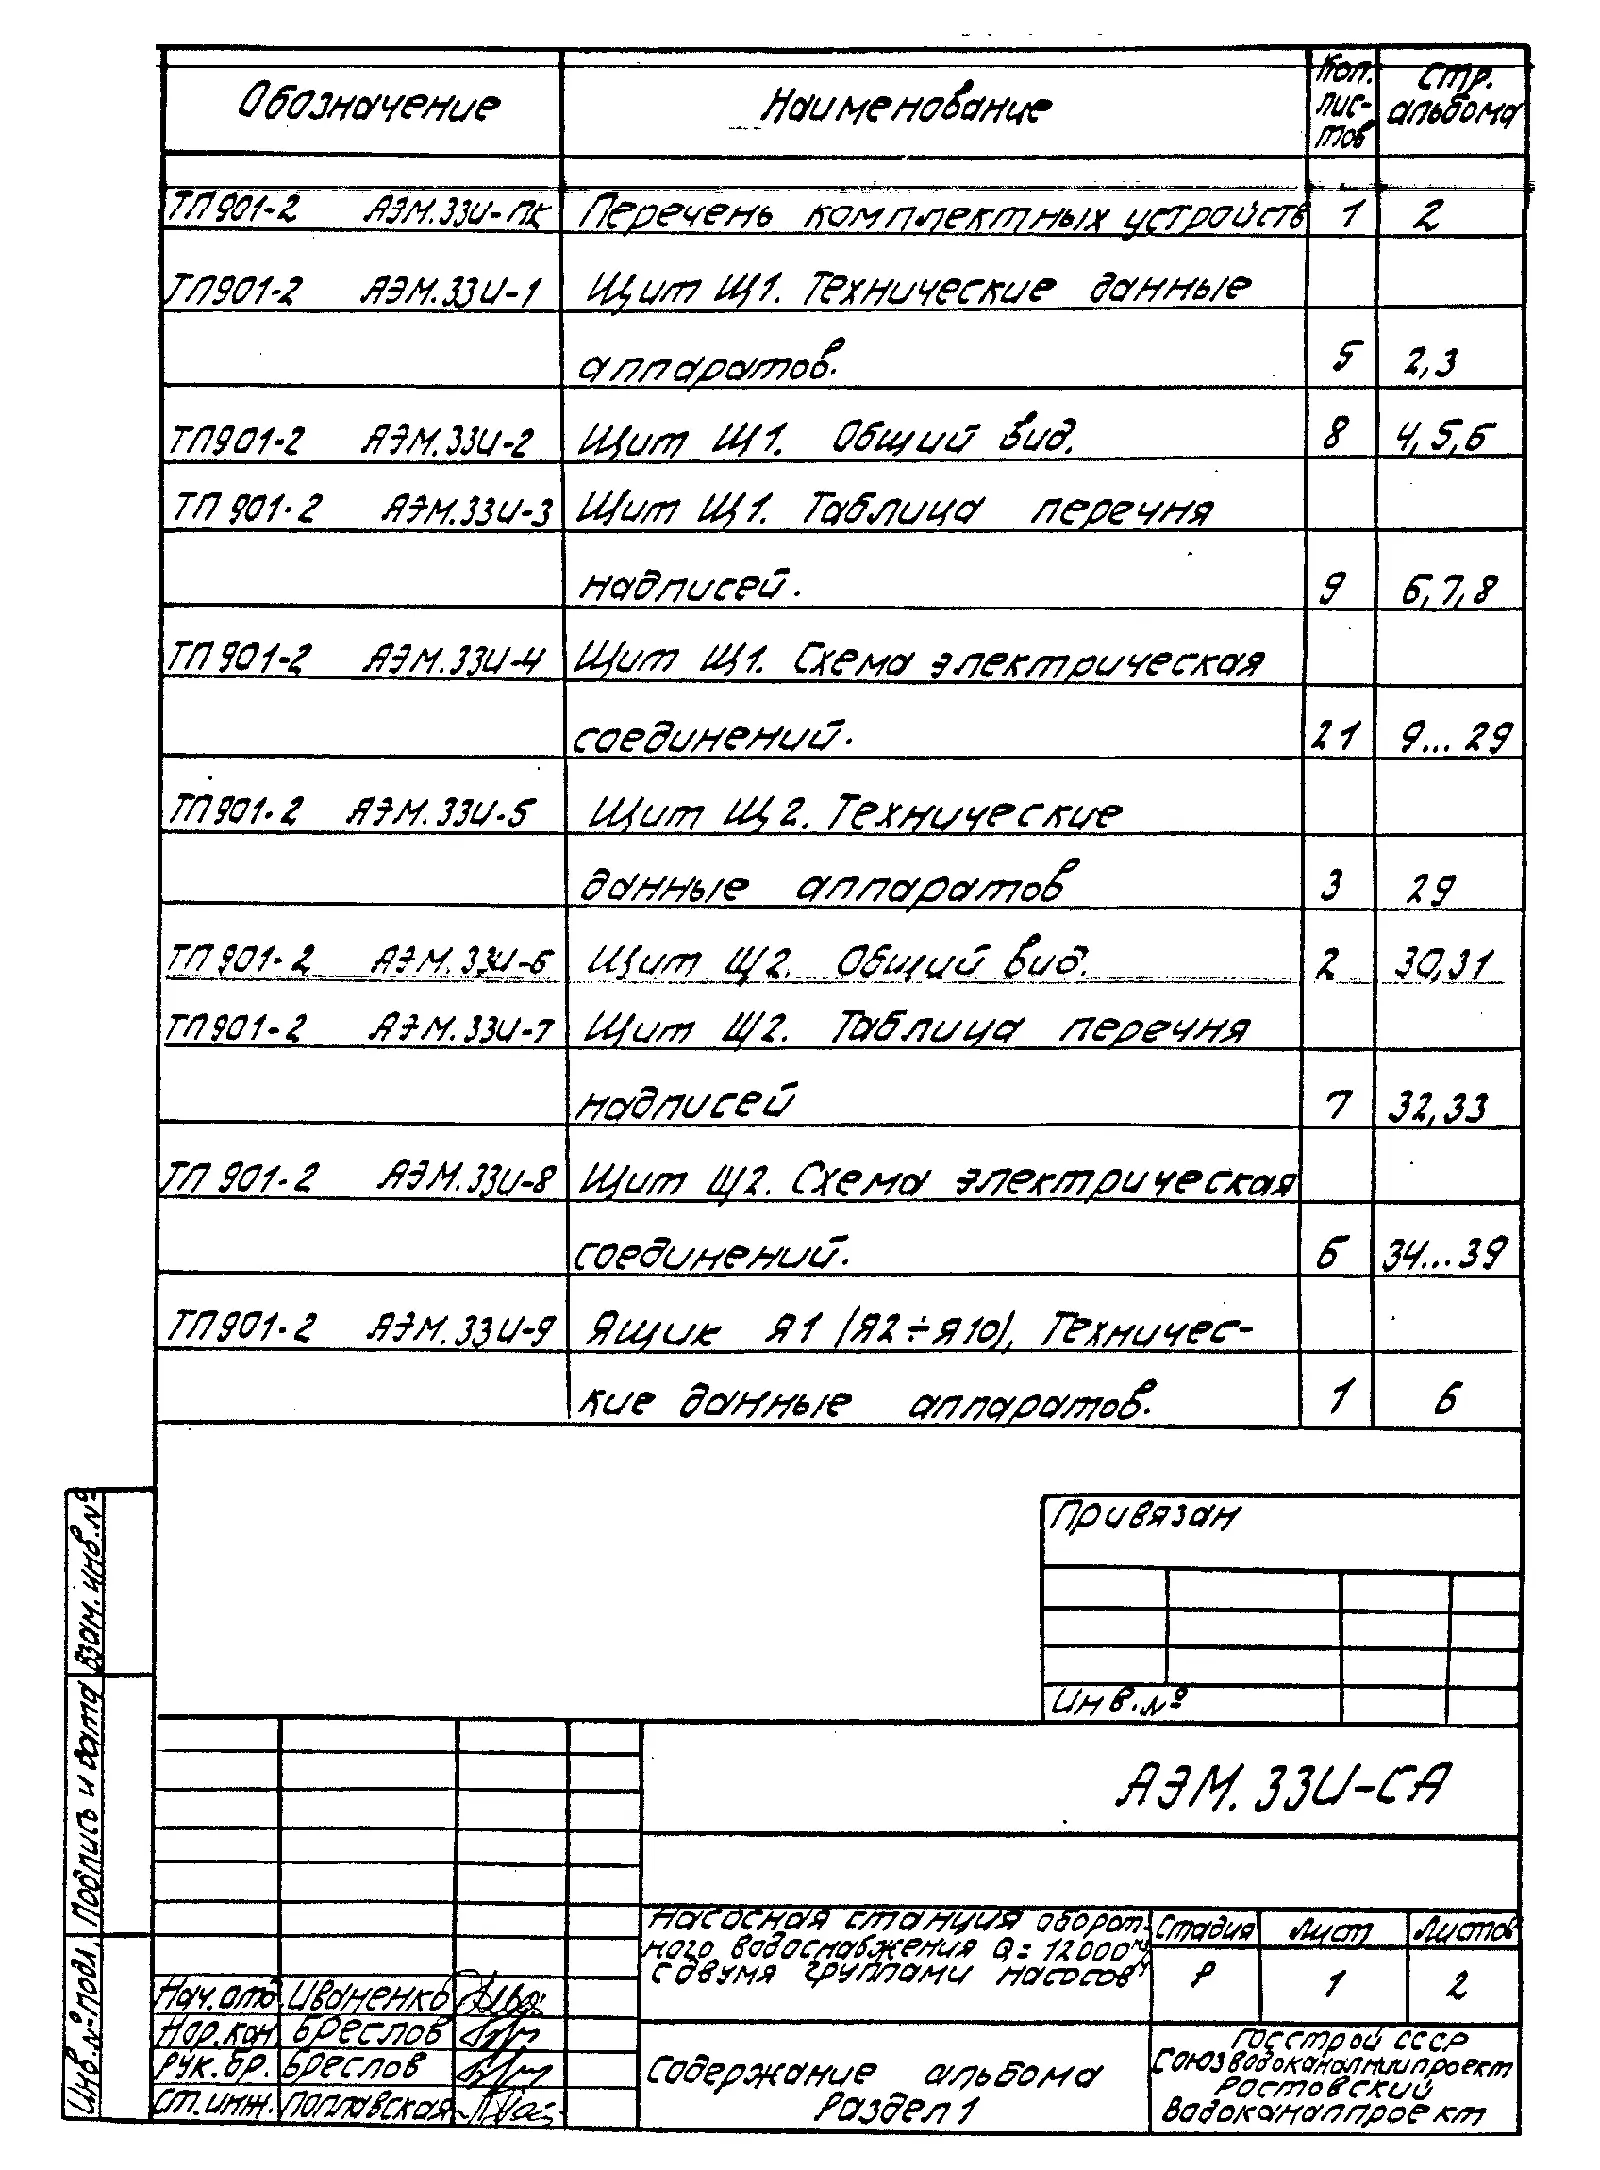 Обозначение Наименование Кол. лис-тов Стр. альбома
ТП901-2 АЭМ.33И-ПК Перечень комплектных устройств 1 2
ТП901-2 АЭМ.33И-1 Щит Щ1. Технические данные
аппаратов. 5 2,3
ТП901-2 АЭМ.33И-2 Щит Щ1. Общий вид. 8 4,5,6
ТП901-2 АЭМ.33И-3 Щит Щ1. Таблица перечня
надписей. 9 6,7,8
ТП901-2 АЭМ.33И-4 Щит Щ1. Схема электрическая
соединений. 21 9...29
ТП901-2 АЭМ.33И-5 Щит Щ2. Технические
данные аппаратов 3 29
ТП901-2 АЭМ.33И-6 Щит Щ2. Общий вид. 2 30,31
ТП901-2 АЭМ.33И-7 Щит Щ2. Таблица перечня
надписей 7 32,33
ТП901-2 АЭМ.33И-8 Щит Щ2. Схема электрическая
соединений. 6 34...39
ТП901-2 АЭМ.33И-9 Ящик Я1 (Я2÷Я10), Техничес-
кие данные аппаратов. 1 6
Привязан
Инв.№
Взам. инв.№
Подпись и дата
Инв.№ подл.
АЭМ.33И-СА
Насосная станция оборот-
ного водоснабжения Q=12000м³/ч
с двумя группами насосов
Стадия Лист Листов
Р 1 2
Нач.отд. Иваненко
Нор.кон. Бреслов
Рук.бр. Бреслов
Ст.инж. Поплавская
Содержание альбома
Раздел 1
Госстрой СССР
Союзводоканалниипроект
Ростовский
Водоканалпроект